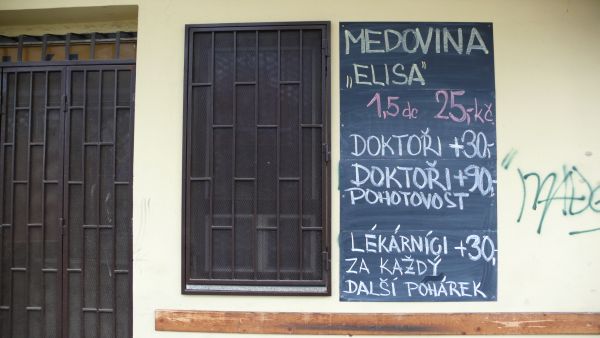 MEDOVINA
„ELISA"
1,5 dc 25,-kč
DOKTOŘI +30,-
DOKTOŘI +90,-
POHOTOVOST
LÉKÁRNÍGI +30,-
ZA KAŽDÝ
DALŠÍ POHÁREK